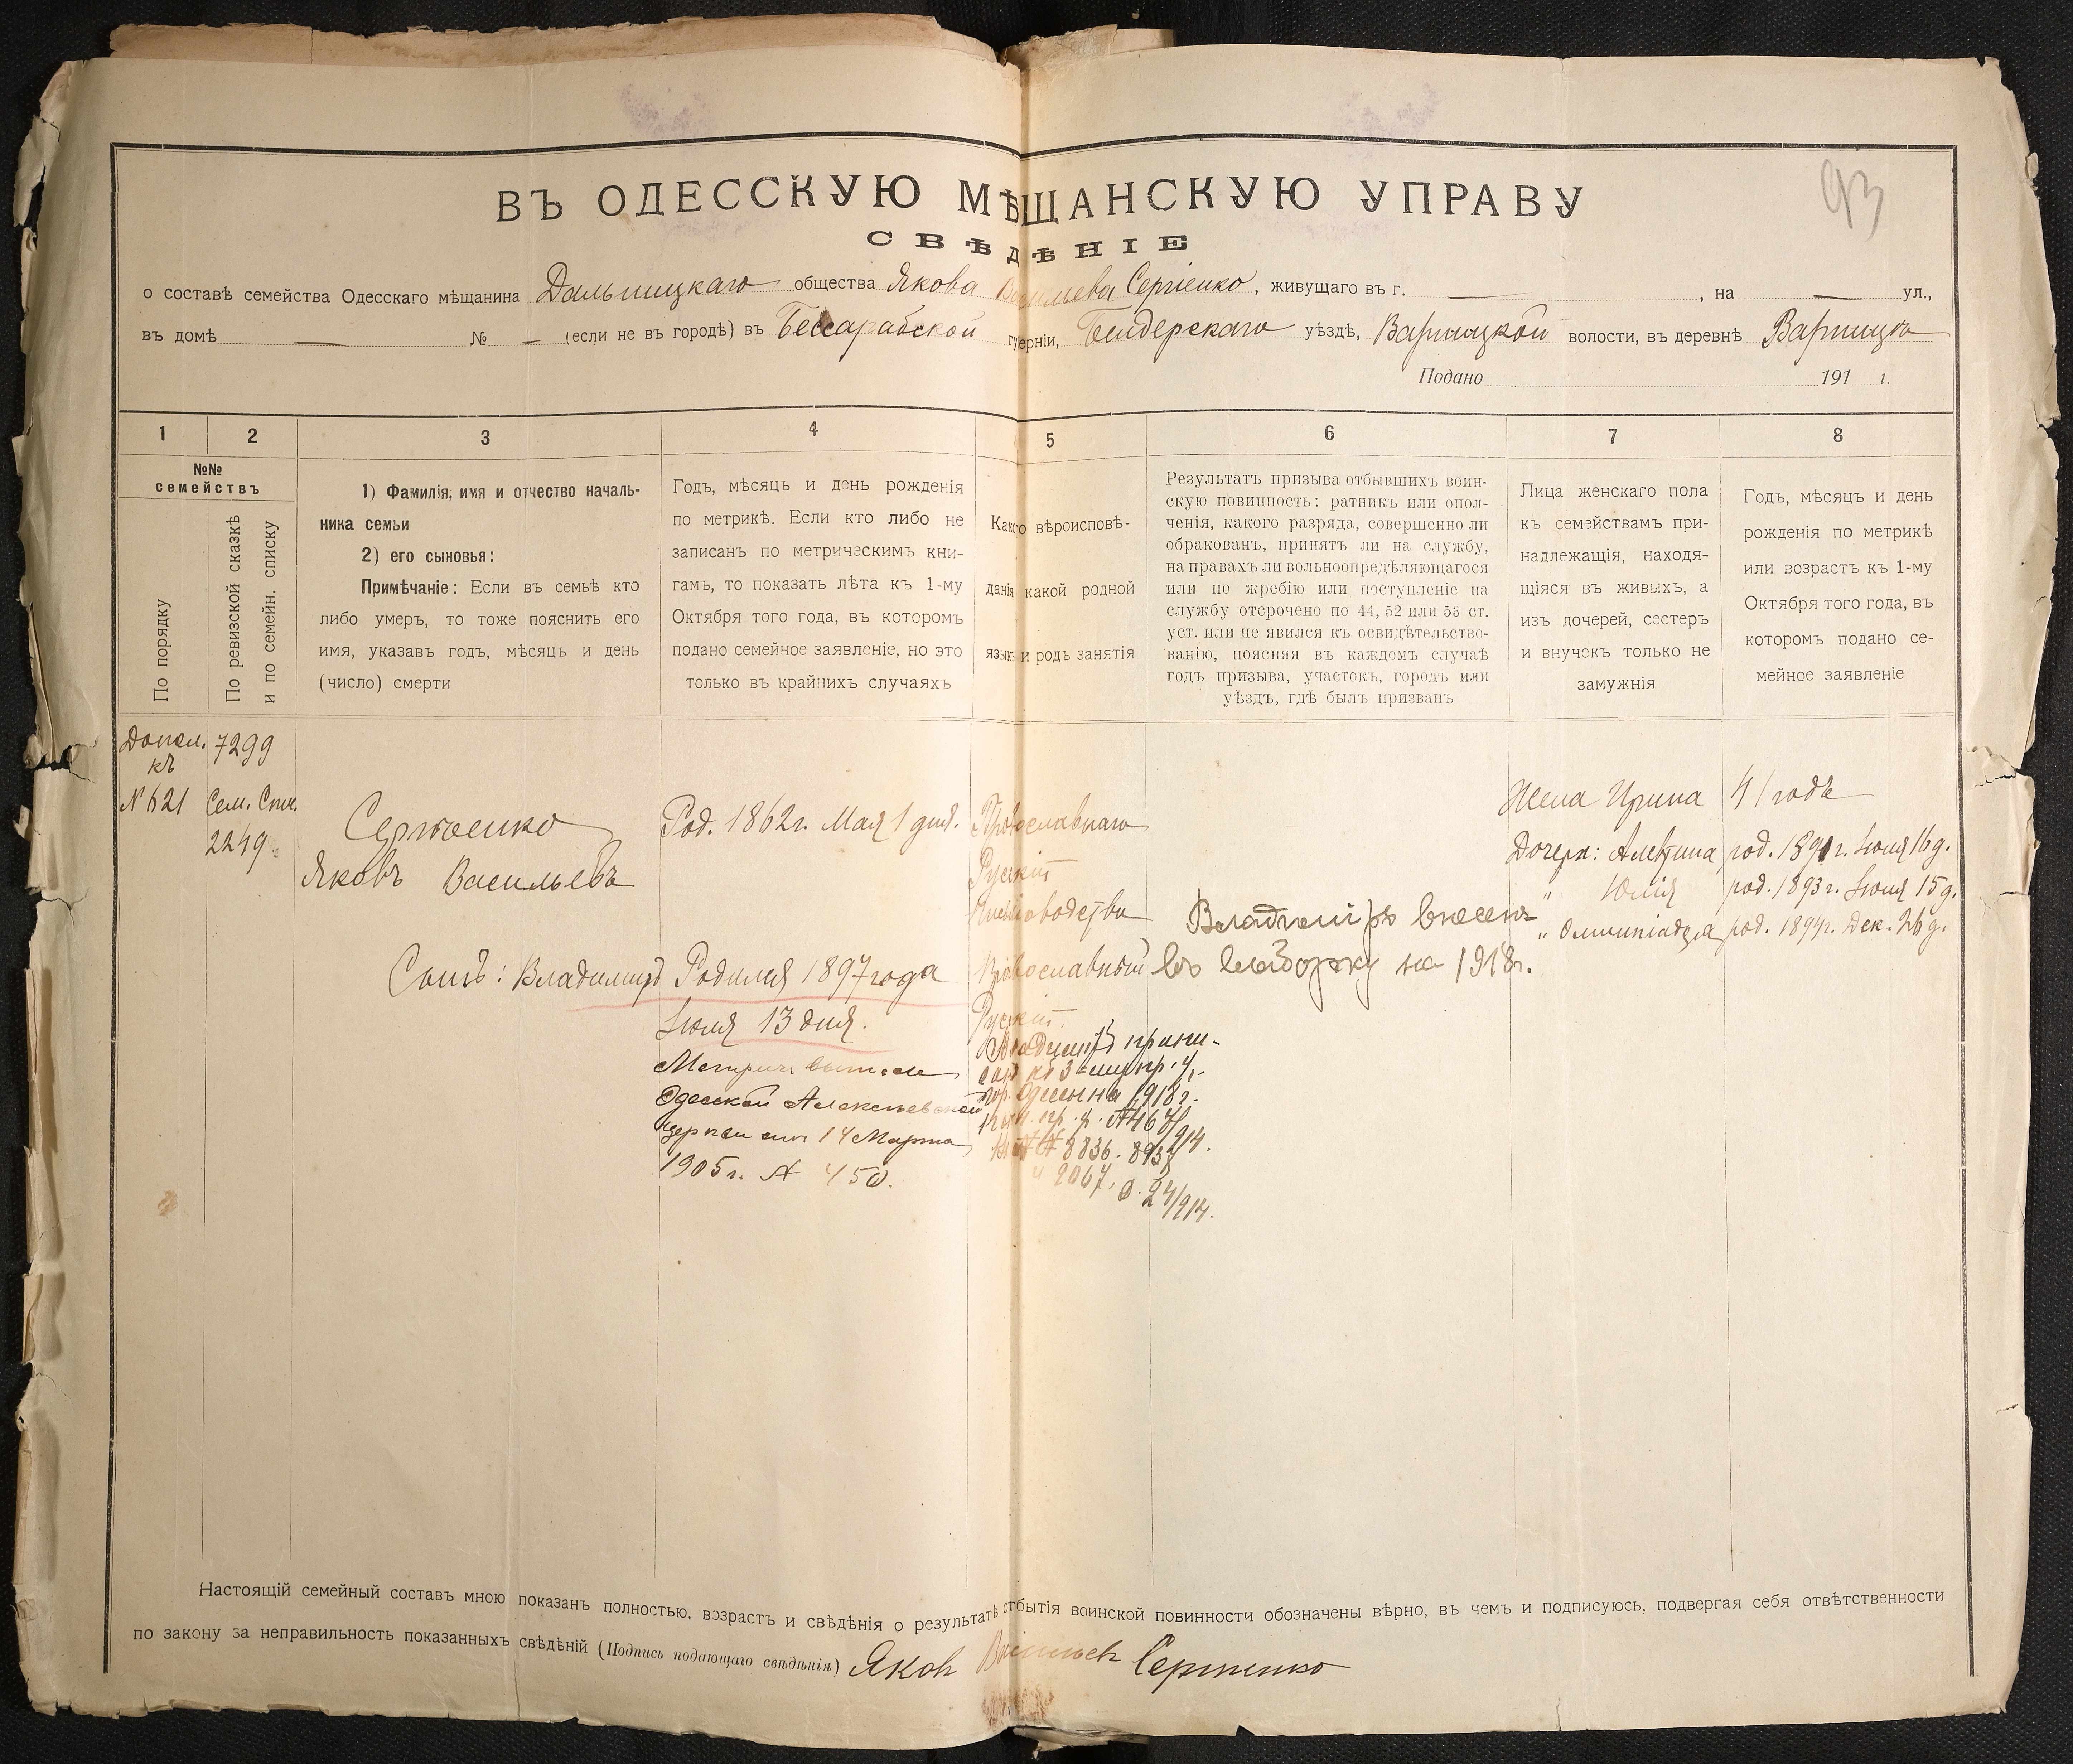 93
ВЪ ОДЕССКУЮ МѢЩАНСКУЮ УПРАВУ
СВѢДѢНІЕ
о составѣ семейства Одесскаго мѣщанина Дальницкаго общества Якова Васильева Сергіенко, живущаго въ г. — , на — ул.,
въ домѣ — № — (если не въ городѣ) въ Бессарабской губерніи, Бендерскаго уѣздѣ, Варницкой волости, въ деревнѣ Варница
Подано 191 г.
1
2
3
4
5
6
7
8
№№
семействъ
По порядку
По ревизской сказкѣ
и по семейн. списку
1) Фамилія, имя и отчество началь-
ника семьи
2) его сыновья:
Примѣчаніе: Если въ семьѣ кто
либо умеръ, то тоже пояснить его
имя, указавъ годъ, мѣсяцъ и день
(число) смерти
Годъ, мѣсяцъ и день рожденія
по метрикѣ. Если кто либо не
записанъ по метрическимъ кни-
гамъ, то показать лѣта къ 1-му
Октября того года, въ которомъ
подано семейное заявленіе, но это
только въ крайнихъ случаяхъ
Какого вѣроисповѣ-
данія, какой родной
языкъ и родъ занятія
Результатъ призыва отбывшихъ воин-
скую повинность: ратникъ или опол-
ченія, какого разряда, совершенно ли
обракованъ, принятъ ли на службу,
на правахъ ли вольноопредѣляющагося
или по жребію или поступленіе на
службу отсрочено по 44, 52 или 53 ст.
уст. или не явился къ освидѣтельство-
ванію, поясняя въ каждомъ случаѣ
годъ призыва, участокъ, городъ или
уѣздъ, гдѣ былъ призванъ
Лица женскаго пола
къ семействамъ при-
надлежащія, находя-
щіяся въ живыхъ, а
изъ дочерей, сестеръ
и внучекъ только не
замужнія
Годъ, мѣсяцъ и день
рожденія по метрикѣ
или возрастъ къ 1-му
Октября того года, въ
которомъ подано се-
мейное заявленіе
Допол.
къ
№ 621
7299
Сем. Спис.
2249
Сергіенко
Яковъ Васильевъ
Сынъ: Владимиръ
Род. 1862 г. Мая 1 дня.
Родился 1897 года
Іюля 13 дня.
Метрич. выпись
Одесской Алексѣевской
церкви от 14 Марта
1905 г. № 450.
Православнаго
Рускій
Православный
Рускій.
Владиміръ припи-
сан къ 3-му пр. у.
гор. Одессы на 1918 г.
№№ 8836. 8937
и 2067. 24/914.
Владиміръ внесенъ
въ выборку на 1918 г.
Жена Ирина
Дочери: Алевтина
" Юлія
" Олимпіадга
41 годъ
род. 1891 г. Іюля 16 д.
род. 1893 г. Іюля 15 д.
род. 1894 г. Дек. 26 д.
Настоящій семейный составъ мною показанъ полностью, возрастъ и свѣдѣнія о результатѣ отбытія воинской повинности обозначены вѣрно, въ чемъ и подписуюсь, подвергая себя отвѣтственности
по закону за неправильность показанныхъ свѣдѣній (Подпись подающаго свѣдѣнія) Яков Васильев Сергіенко